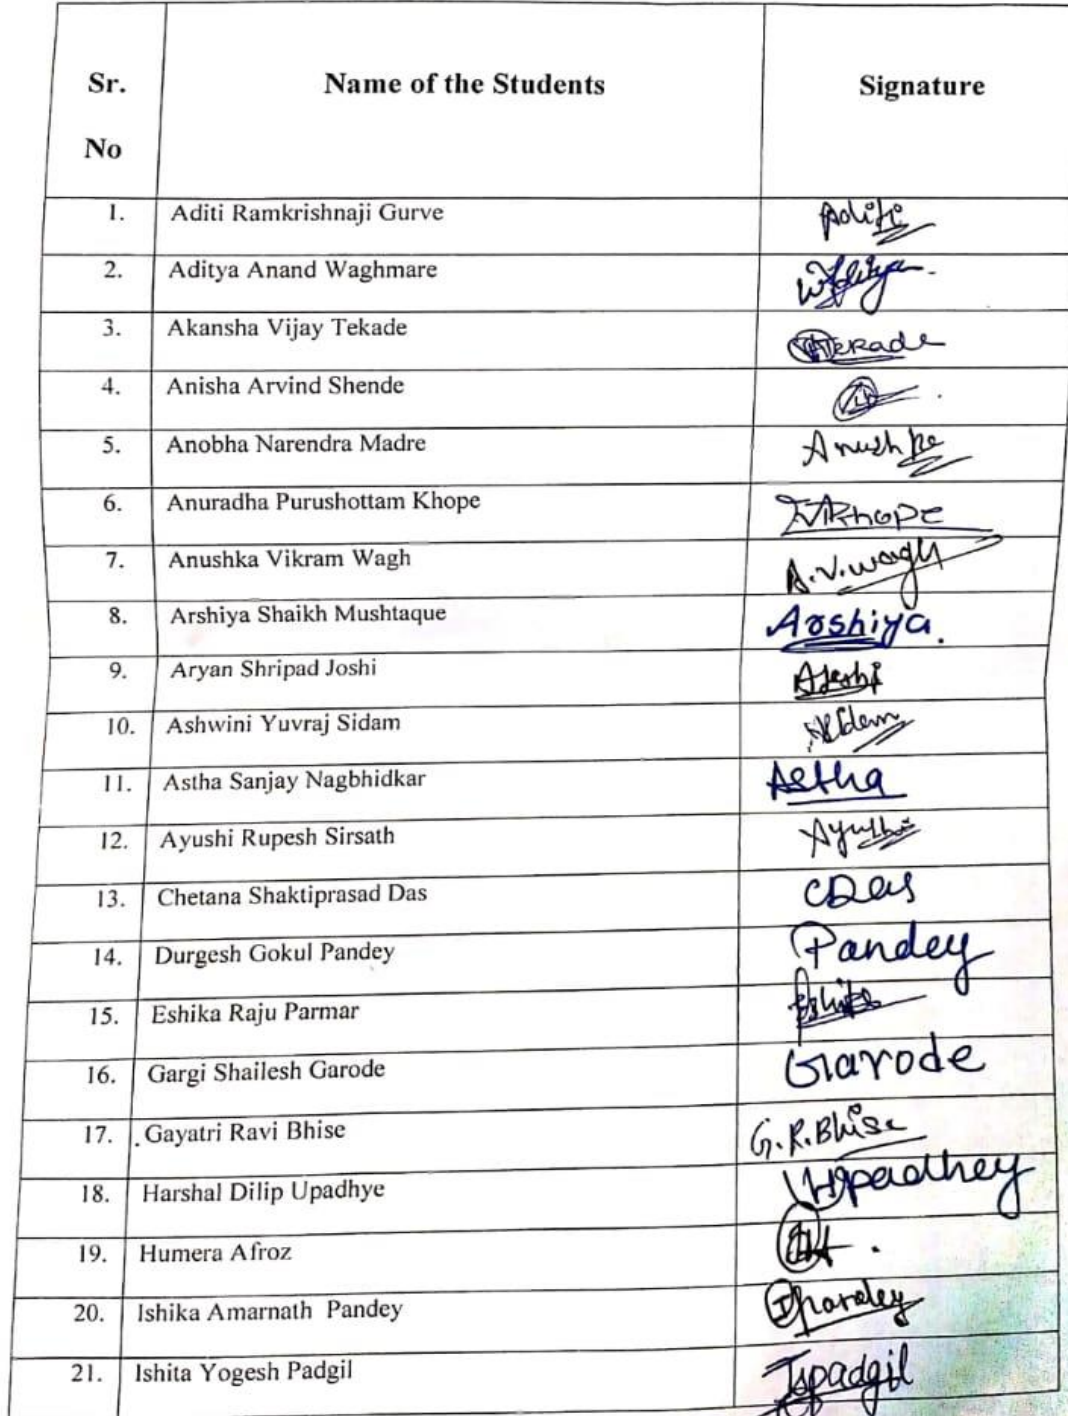 Sr. No Name of the Students Signature
1. Aditi Ramkrishnaji Gurve Aditi
2. Aditya Anand Waghmare WAditya
3. Akansha Vijay Tekade Tekade
4. Anisha Arvind Shende
5. Anobha Narendra Madre
6. Anuradha Purushottam Khope Khope
7. Anushka Vikram Wagh A.V.wagh
8. Arshiya Shaikh Mushtaque Arshiya.
9. Aryan Shripad Joshi AJoshi
10. Ashwini Yuvraj Sidam
11. Astha Sanjay Nagbhidkar Astha
12. Ayushi Rupesh Sirsath Ayushi
13. Chetana Shaktiprasad Das CDas
14. Durgesh Gokul Pandey Pandey
15. Eshika Raju Parmar Eshika
16. Gargi Shailesh Garode Garode
17. Gayatri Ravi Bhise G.R.Bhise
18. Harshal Dilip Upadhye
19. Humera Afroz
20. Ishika Amarnath Pandey IPandey
21. Ishita Yogesh Padgil Iypadgil